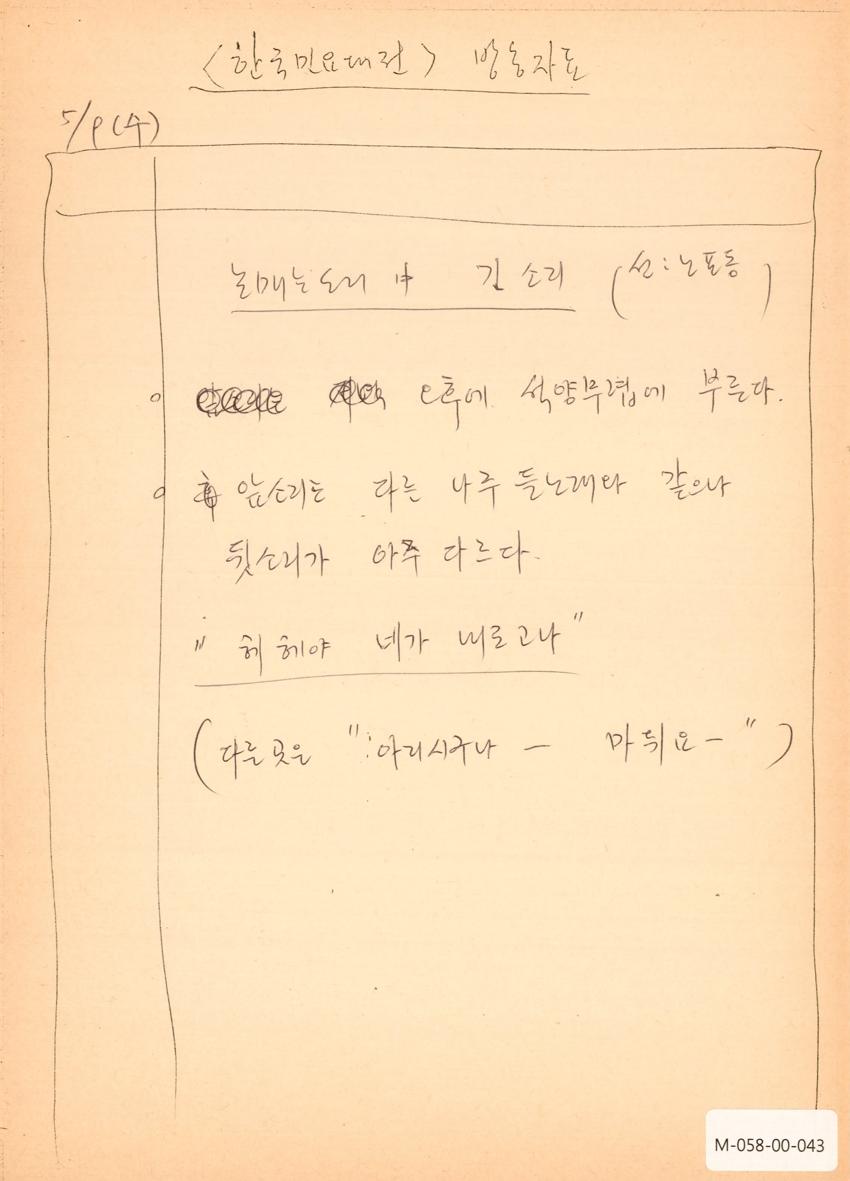 <한국민요대전> 방송자료
5/9(수)
논매는소리 中 긴소리 (선:노포동)
오후에 석양무렵에 부른다.
앞소리는 다른 나주 들노래와 같으나
뒷소리가 아주 다르다.
" 헤 헤야 네가 내로고나"
(다른곳은 "아리시구나 — 마뒤요 — ")
M-058-00-043